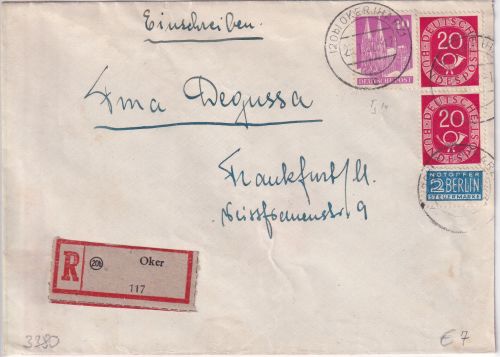 Einschreiben.
(20b) OKER (HARZ)
DEUTSCHE POST
DEUTSCHE
20
BUNDESPOST
DEUTSCHE
20
BUNDESPOST
Fma Degussa
NOTOPFER
2 BERLIN
STEUERMARKE
Frankfurt/M.
Weissfrauenstr. 9
R
20b
Oker
117
3380
€ 7